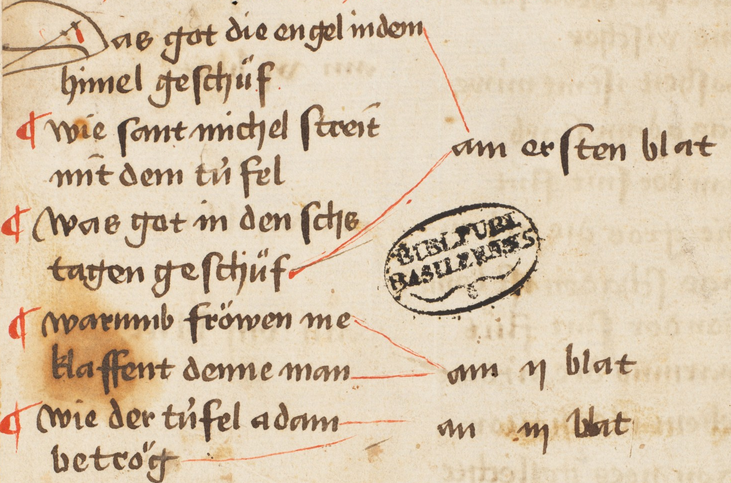 Das got die engel in dem
himel geschüf
¶ wie sant michel streit
mit dem tüfel
am ersten blat
¶ Was got in den sechs
tagen geschüf
BIBL. PUBL.
BASILEENSIS
¶ warumb fröwen me
klaffent denne man
am ij blat
¶ wie der tüfel adam
betrög
an iij blat